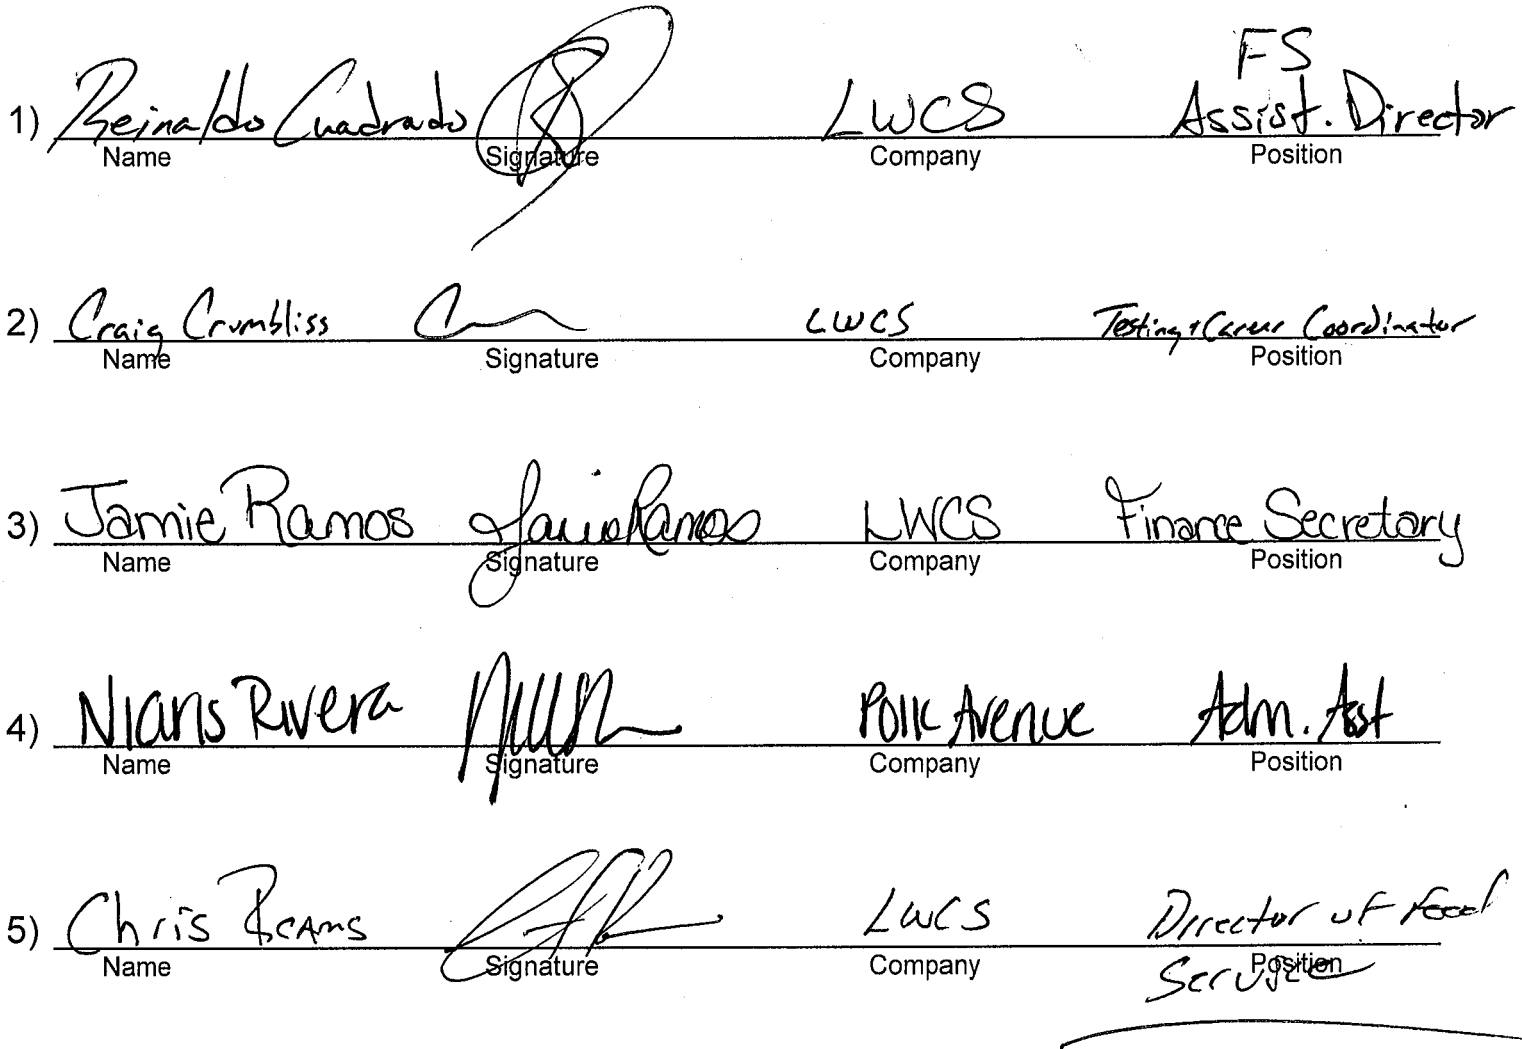 FS
1) Reinaldo Cuadrado LWCS Assist. Director
Name Signature Company Position
2) Craig Crumbliss LWCS Testing + Career Coordinator
Name Signature Company Position
3) Jamie Ramos Jamie Ramos LWCS Finance Secretary
Name Signature Company Position
4) Nianis Rivera Polk Avenue Adm. Asst
Name Signature Company Position
5) Chris Reams LWCS Director of Food
Name Signature Company Position
Service